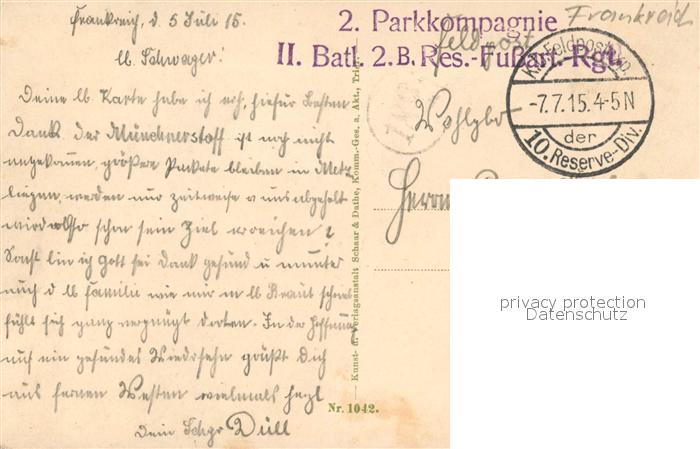 Frankreich, d. 5 Juli 15.
lb. Schwager!
Deine lb Karte habe ich erh, hiefür besten
Dank. der Münchnerstoff ist noch nicht
angekommen, größere Packete bleiben in Metz
liegen, werden nur zeitweise v uns abgeholt
wird also schon sein Ziel erreichen!
Sonst bin ich Gott sei Dank gesund u munter
auch d lb Familie wie mir m lb Braut schreibt
fühlt sich ganz vergnügt dorten. In der Hoffnung
auf ein gesundes Wiedersehn grüßt Dich
aus fernen Westen vielmals herzl
Dein Schgr Düll
2. Parkkompagnie
II. Batl. 2. B. Res.-Fußart.-Rgt.
Frankreich
Feldpost
Wohlgb
Herrn
K.B. Feldpostexp.
-7.7.15.4-5N
der
10. Reserve-Div.
Kunst- u. Verlagsanstalt Schaar & Dathe, Komm.-Ges. a. Akt., Trier.
Nr. 1042.
privacy protection
Datenschutz